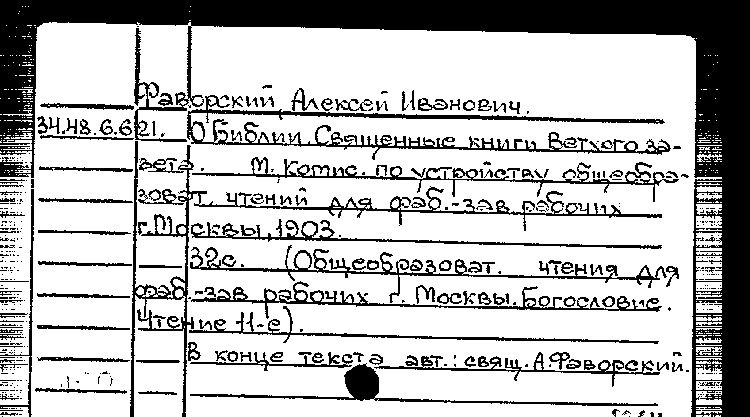 Фаворский, Алексей Иванович.
34.48.6.621. О Библии. Священные книги Ветхого за-
вета. М., Комис. по устройству общеобра-
зоват. чтений для фаб.-зав рабочих
г. Москвы, 1903.
32с. (Общеобразоват. чтения для
фаб.-зав рабочих г. Москвы. Богословие.
Чтение 11-е).
В конце текста авт.: свящ. А. Фаворский.